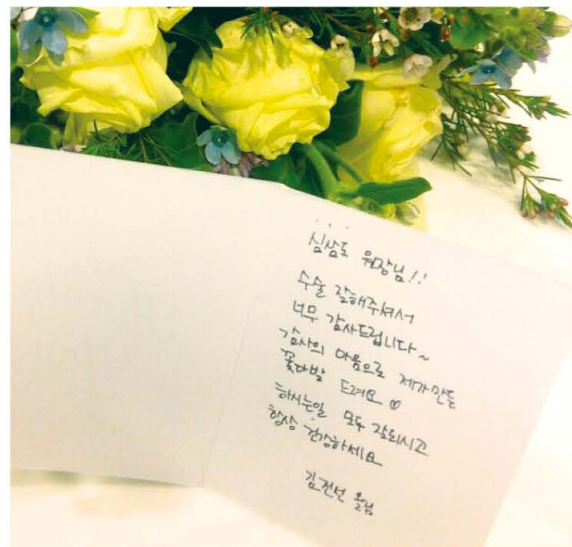 심삼도 원장님!!
수술 잘해주셔서
너무 감사드립니다~
감사의 마음으로 제가만든
꽃다발 드려요 ♡
하시는일 모두 잘되시고
항상 건강하세요
김전선 올림